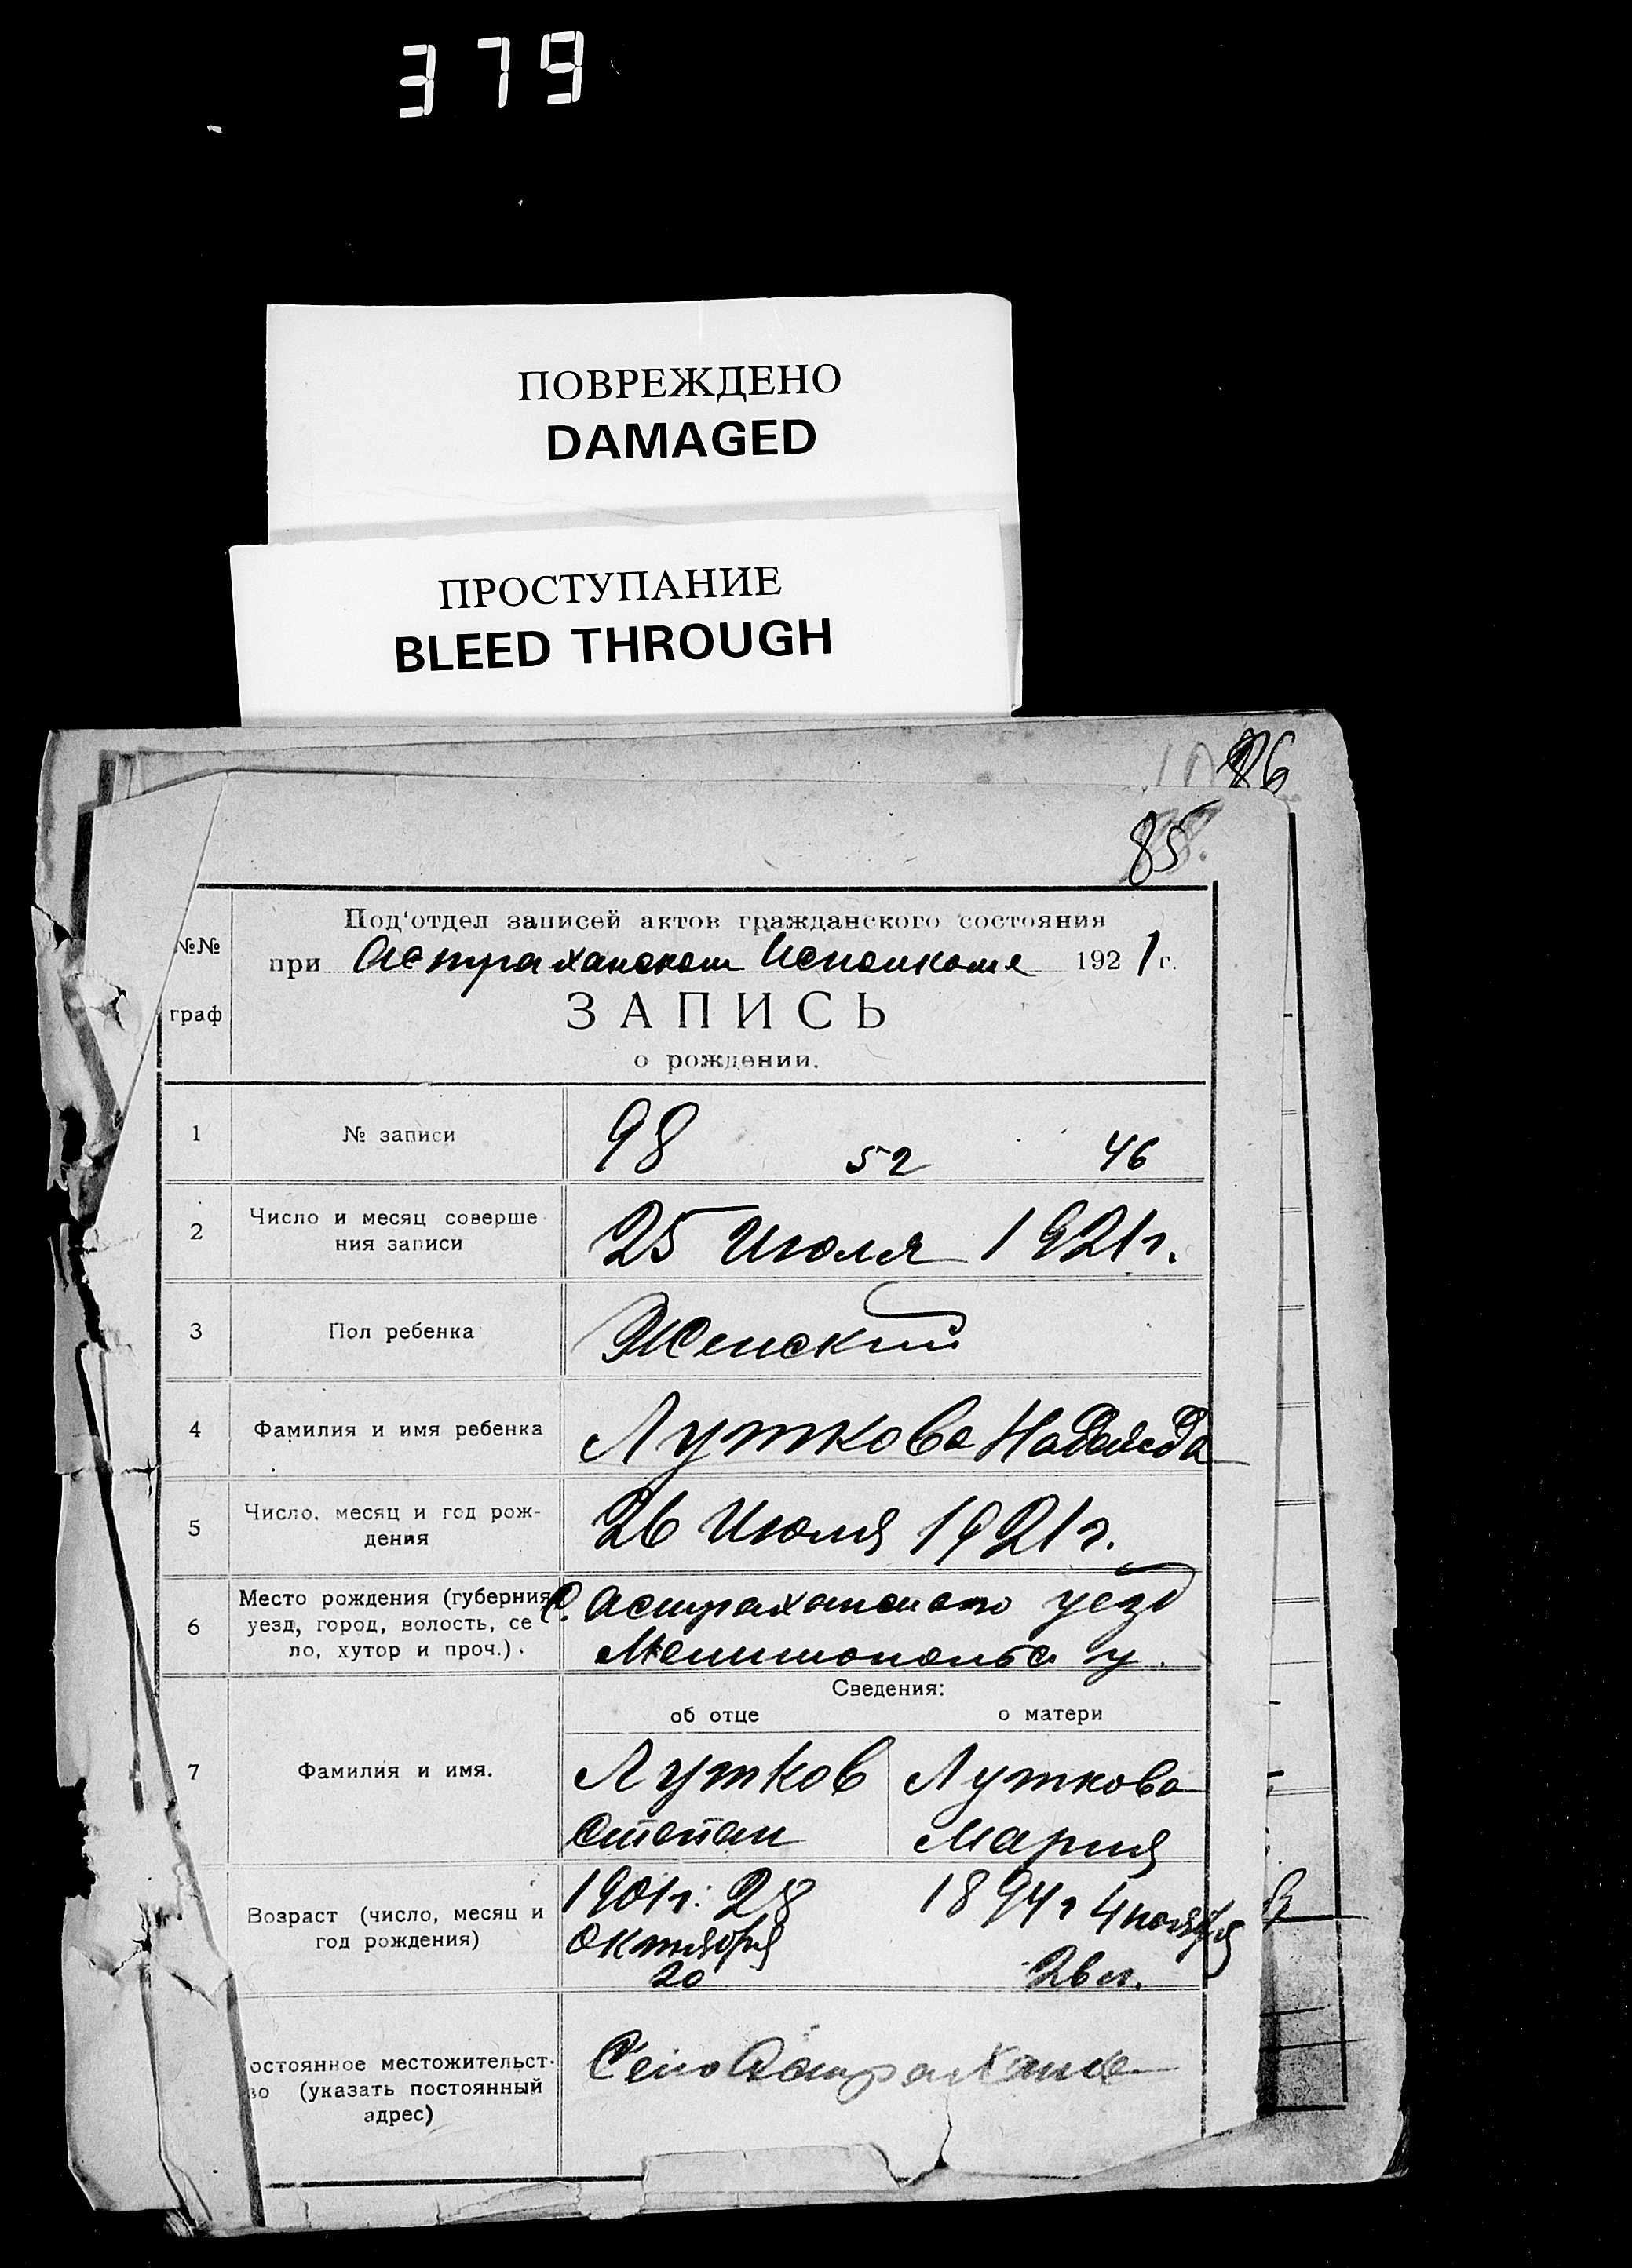 379
ПОВРЕЖДЕНО
DAMAGED
ПРОСТУПАНИЕ
BLEED THROUGH
86
85
Под'отдел записей актов гражданского состояния
№№ граф
при Астраханском Исполкоме 1921 г.
ЗАПИСЬ
о рождении.
1 № записи 98 52 46
2 Число и месяц соверше
ния записи 25 Июля 1921 г.
3 Пол ребенка Женский
4 Фамилия и имя ребенка Луткова Надежда
5 Число, месяц и год рож-
дения 26 Июля 1921 г.
6 Место рождения (губерния С. Астраханка уезд
уезд, город, волость, се
ло, хутор и проч.). Мелитопольс. у.
Сведения:
об отце о матери
7 Фамилия и имя. Лутков Луткова
Степан Мария
Возраст (число, месяц и 1901 г. 28 1894 г 4 ноября
год рождения) октября
20 26 л.
остоянное местожительст-
во (указать постоянный Село Астраханка
адрес)